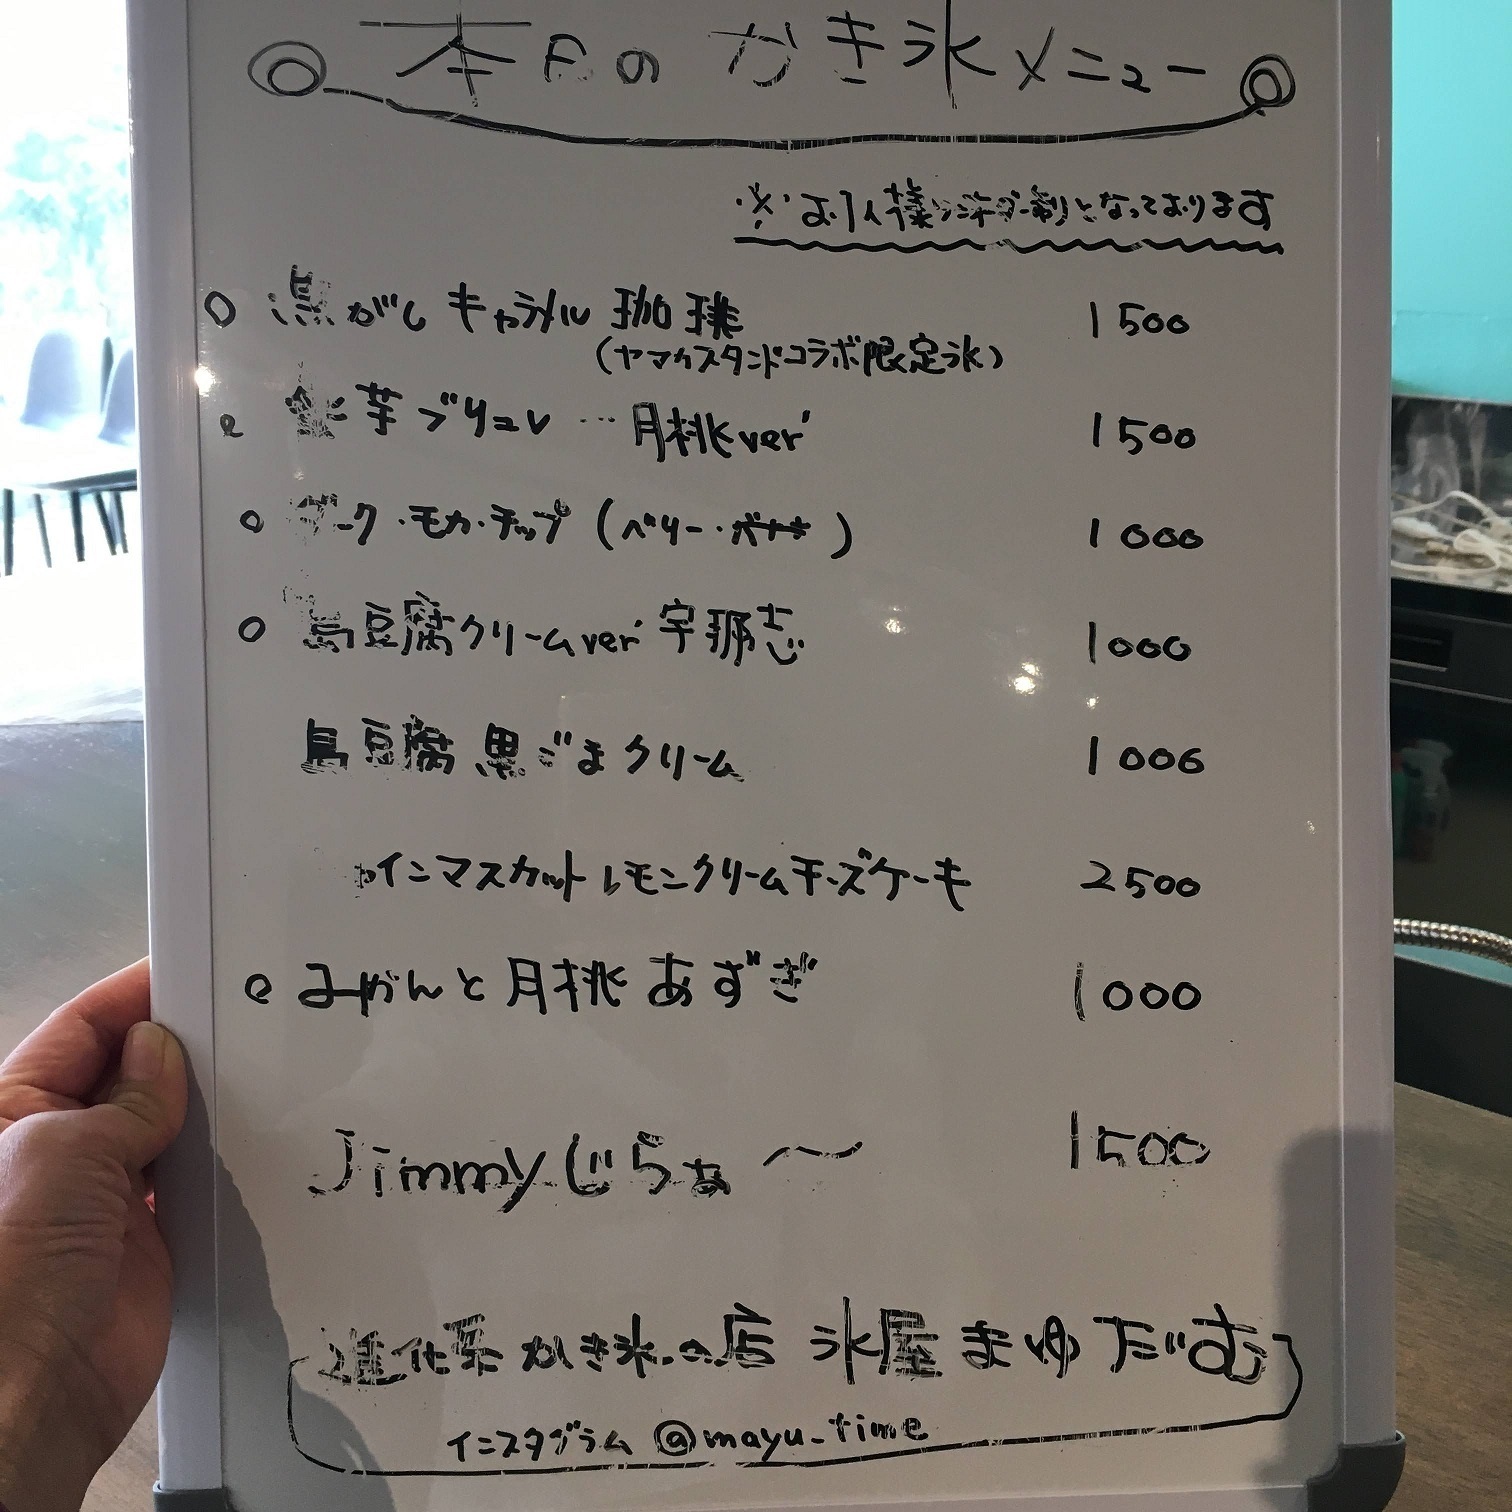 本日の かき氷メニュー
※お1人様ワンオーダー制となっております
焦がし キャラメル 珈琲 1500
(ヤマカスタンドコラボ限定氷)
芋ブリュレ…月桃ver' 1500
ダーク・モカ・チップ (ベリー・バナナ) 1000
島豆腐クリームver' 宇那志 1000
島豆腐 黒ごまクリーム 1000
インマスカットレモンクリームチーズケーキ 2500
みかんと月桃 あずき 1000
Jimmyじらぁ〜 1500
進化系かき氷の店 氷屋まゆだいむ
インスタグラム @mayu_time